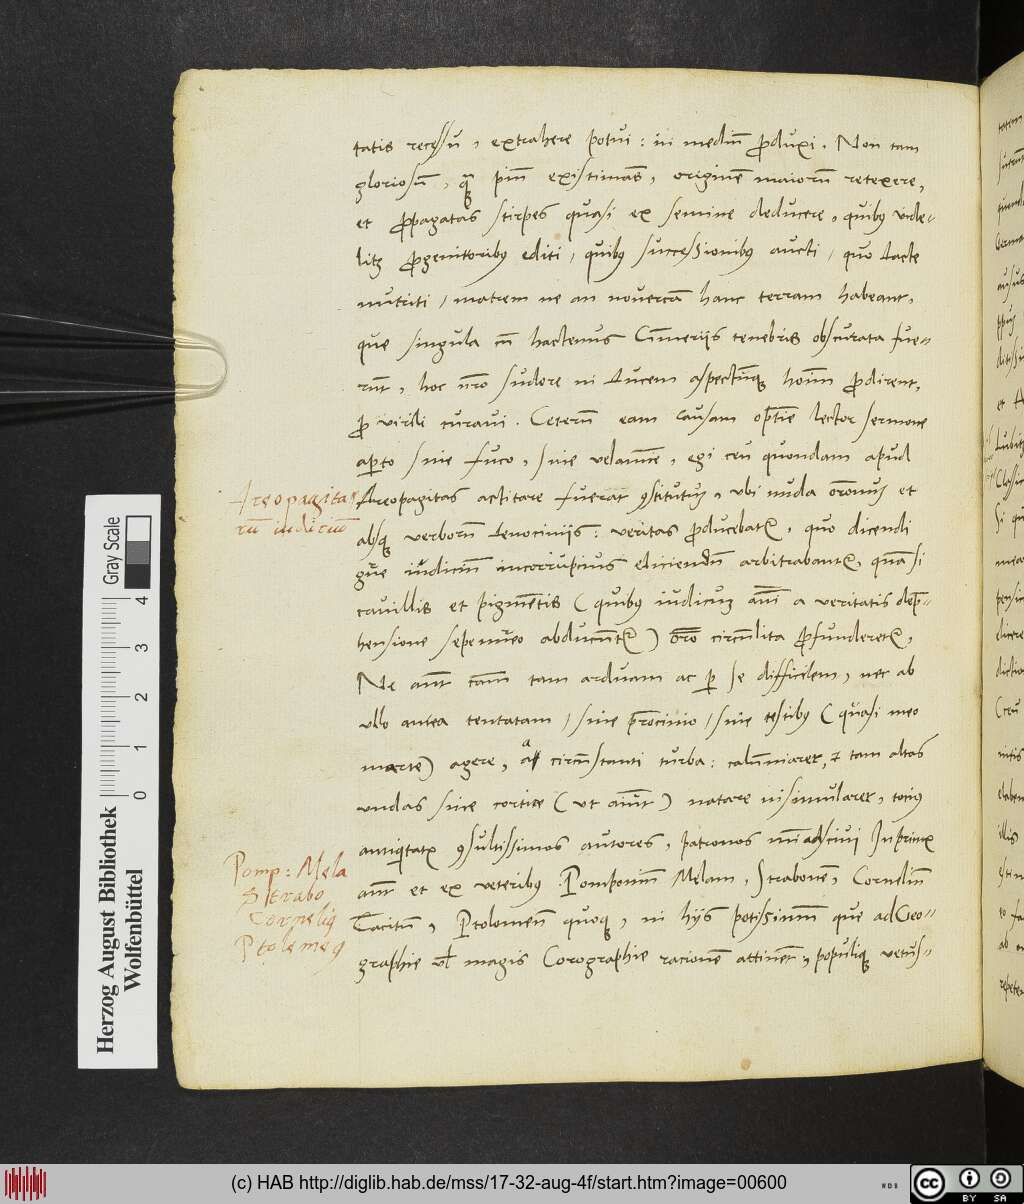 tatis recessu, extrahere potui: in mediū ꝓduxi. Non tam
gloriosū, quā piū existimās, originē maiorū retexere,
et ꝓpagatas stirpes quasi ex semine deducere, quibꝰ vide-
litꝫ ꝓgenitoribꝰ editi, quibꝰ successionibꝰ aucti, quo Lacte
nutriti, matrem ne an nouercā hanc terram habeant,
que singula cū hactenus Cīmerijs tenebris obscurata fue-
rūt, hoc nr̄o sudore in Lucem aspectūqꝫ hoīm ꝓdirent,
ꝓ virili curaui. Ceterū eam causam optīe lector sermone
aꝑto sine fuco, sine velamīe, egi ceu quondam apud
Areopagitas actitare fuerat ꝯstitutū, vbi nuda oronuꝫ et
absqꝫ verborū Lenocinijs: veritas ꝓducebatꝛ, quo dicendi
iudiciū incorruptius eliciendū arbitrabantꝛ, quā si
cauillis et pigmētis (quibꝰ iudicuꝫ aīi a veritatis dep̄-
hensione sepenūero abducūtꝛ) or̄o circūlita ꝓfunderetꝛ,
Ne aūt cām tam arduam ac ꝑ se difficilem, nec ab
vllo antea tentatam, sine p̄rocinio, sine testibꝰ (quasi meo
marte) agere, a circūstanti turba: calūniarer, ⁊ tam altas
vndas sine cortice (vt aiūt) natare insimularer, tociꝰ
antiq̄tatꝭ ꝯsultissimos autores, patronos mī adsciui Inprimꝭ
aūt et ex veteribꝰ Pomponiū Melam, Strabonē, Corneliū
Tacitū, Ptolomeū quoqꝫ, in hijs potissimū que ad Geo-
graphie vꝉ magis Corographie racionē attinēt, populiqꝫ vetus-
Areopagita
rū iudiciū
Pomp: Mela
Strabo
Corneliꝰ
Ptolemeꝰ
Herzog August Bibliothek
Wolfenbüttel
Gray Scale
0 1 2 3 4
(c) HAB http://diglib.hab.de/mss/17-32-aug-4f/start.htm?image=00600
cc BY SA